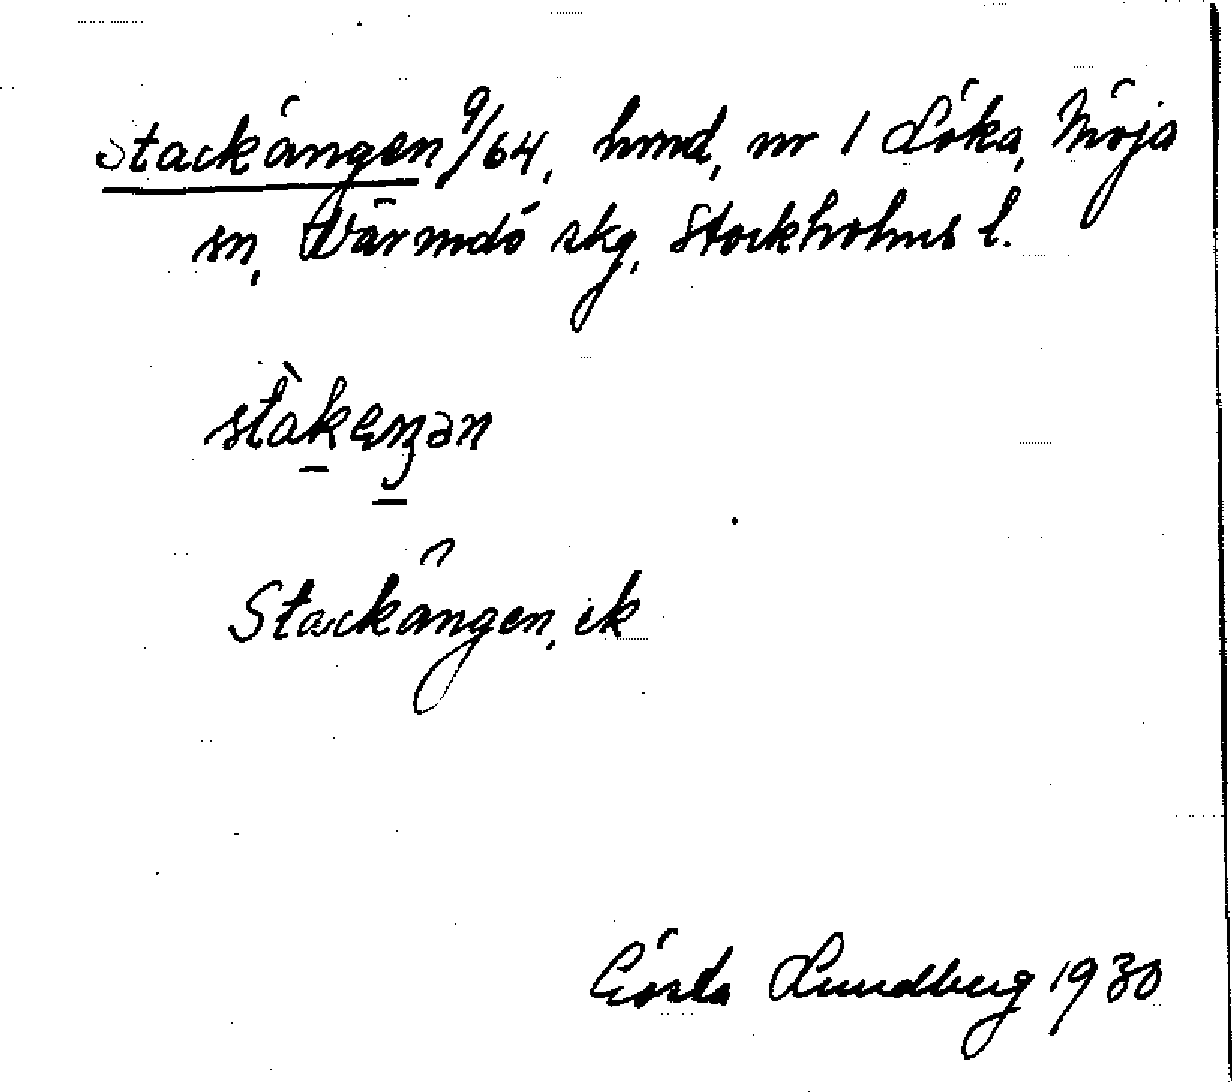 Stackängen 9/64, hmd, nr 1 Löka, Möja
sn, Värmdö skg, Stockholms l.
stàkeŋən
Stackängen, ek
Gösta Lundberg 1930